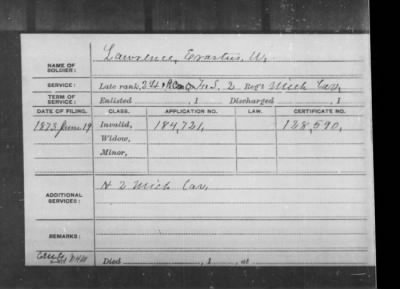 NAME OF SOLDIER: Lawrence, Erastus W.
SERVICE: Late rank, 2d F & S. 2 Reg't Mich Cav,
TERM OF SERVICE: Enlisted , 1 Discharged , 1
DATE OF FILING. CLASS. APPLICATION NO. LAW. CERTIFICATE NO.
1873 June 19 Invalid, 184,721, 128,590,
Widow,
Minor,
ADDITIONAL SERVICES: H. 2 Mich Cav,
REMARKS:
Died , 1 , at